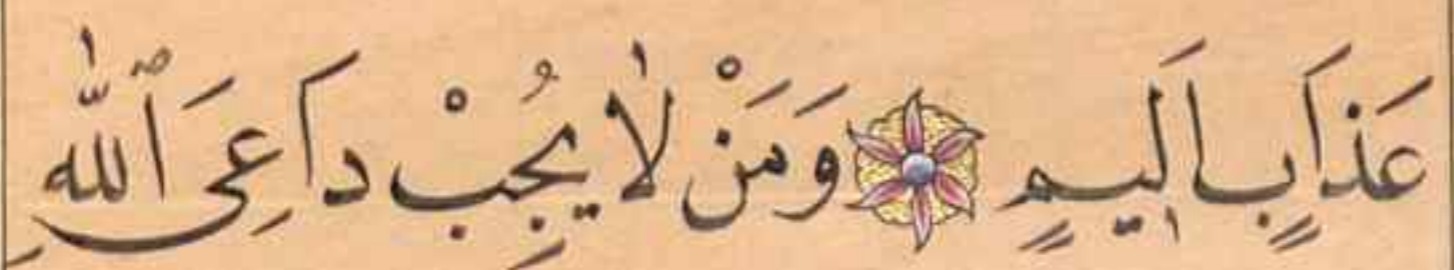 عَذَابٍ اَلٖيمٍ وَمَنْ لَا يُجِبْ دَاعِىَ ٱللّٰهِ